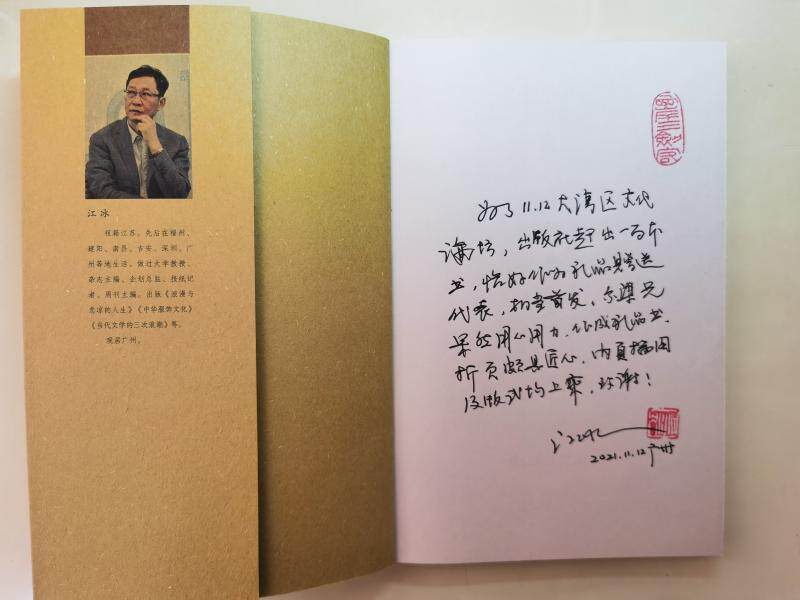 江冰
祖籍江苏。先后在福州、
建阳、南昌、吉安、深圳、广
州等地生活。做过大学教授、
杂志主编、企划总监、报纸记
者、周刊主编。出版《浪漫与
悲凉的人生》《中华服饰文化》
《当代文学的三次浪潮》等。
现居广州。
为了11.12大湾区文化
论坛，出版社赶出一百本
书，恰好作为礼品赠送
代表，相当首发，
果然用心用力，做成礼品书，
折页颇具匠心，内页插图
及版式均上乘，致谢！
江冰
2021.11.12 广州